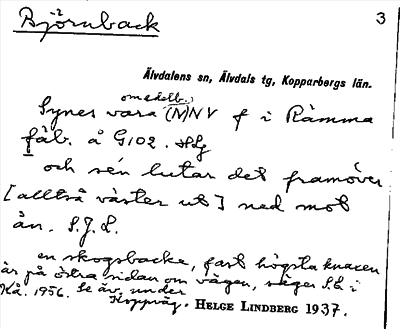 Björnback
3
Älvdalens sn, Älvdals tg, Kopparbergs län.
omedelb.
Synes vara (N)NV f i Rämma
fäb. å G102. HLg
och sen lutar det framöver
[alltså väster ut] ned mot
ån. S.J.L.
en skogsbacke, fast högsta knacen
är på östra sidan om vägen, säger S.L i
Kå. 1956. Se äv. under
Koppväg. HELGE LINDBERG 1937.